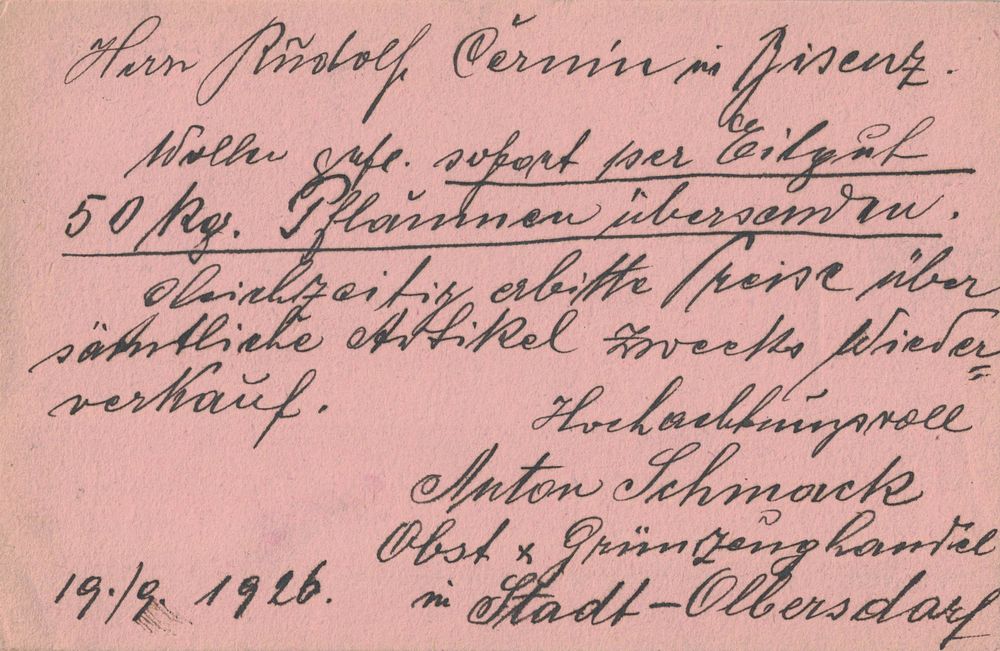 Herr Rudolf Černin in Bisenz.
Wollen gefl. sofort per Eilgut
50 kg. Pflaumen übersenden.
Gleichzeitig erbitte Preise über
sämtliche Artikel zwecks Wieder=
verkauf.
Hochachtungsvoll
Anton Schmack
Obst & Grünzeughandel
19./9. 1926. in Stadt-Olbersdorf